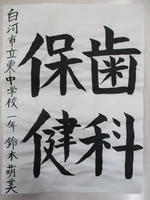 歯科
保健
白河市立東中学校 一年 鈴木萌美